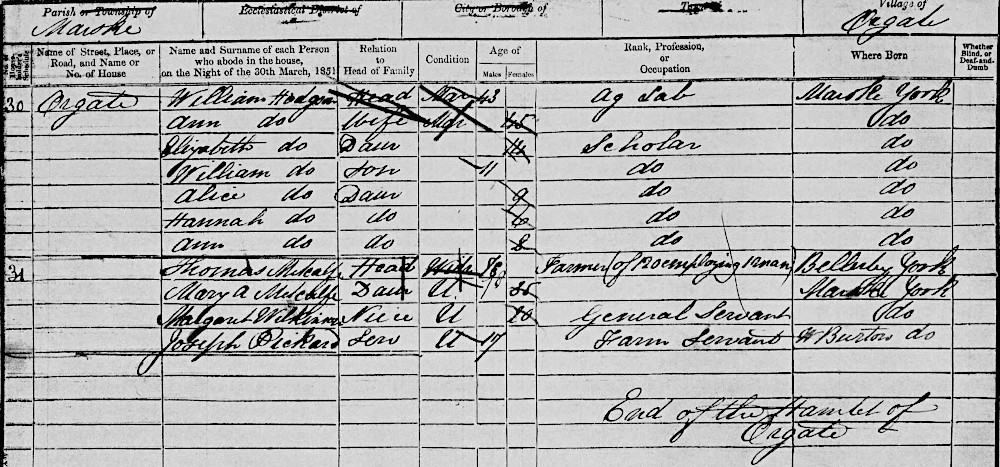 Parish or Township of Ecclesiastical District of City or Borough of Town of Village of
Marske Orgate
Name of Street, Place, or Road, and Name or No. of House Name and Surname of each Person who abode in the house, on the Night of the 30th March, 1851 Relation to Head of Family Condition Age of Males Females Rank, Profession, or Occupation Where Born Whether Blind, or Deaf-and-Dumb
30 Orgate William Hodgson Head Mar 43 Ag Lab Marske York
Ann do Wife Mar 45 do
Elizabeth do Daur 14 Scholar do
William do Son 11 do do
Alice do Daur 9 do do
Hannah do do 6 do do
Ann do do do do
31 Thomas Metcalfe Head Widr Farmer (of 120 employing 1 man) Bellerby York
Mary A Metcalfe Daur U 35 Marske York
Margaret Wilkinson Niece U General Servant do
Joseph Pickard Serv U 17 Farm Servant W Burton do
End of the Hamlet of
Orgate